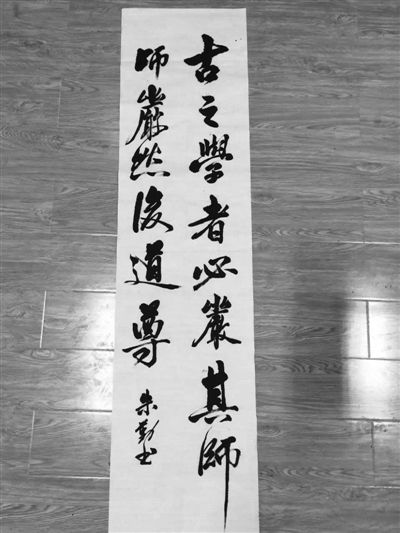 古之學者必嚴其師
師嚴然後道尊
朱勤书